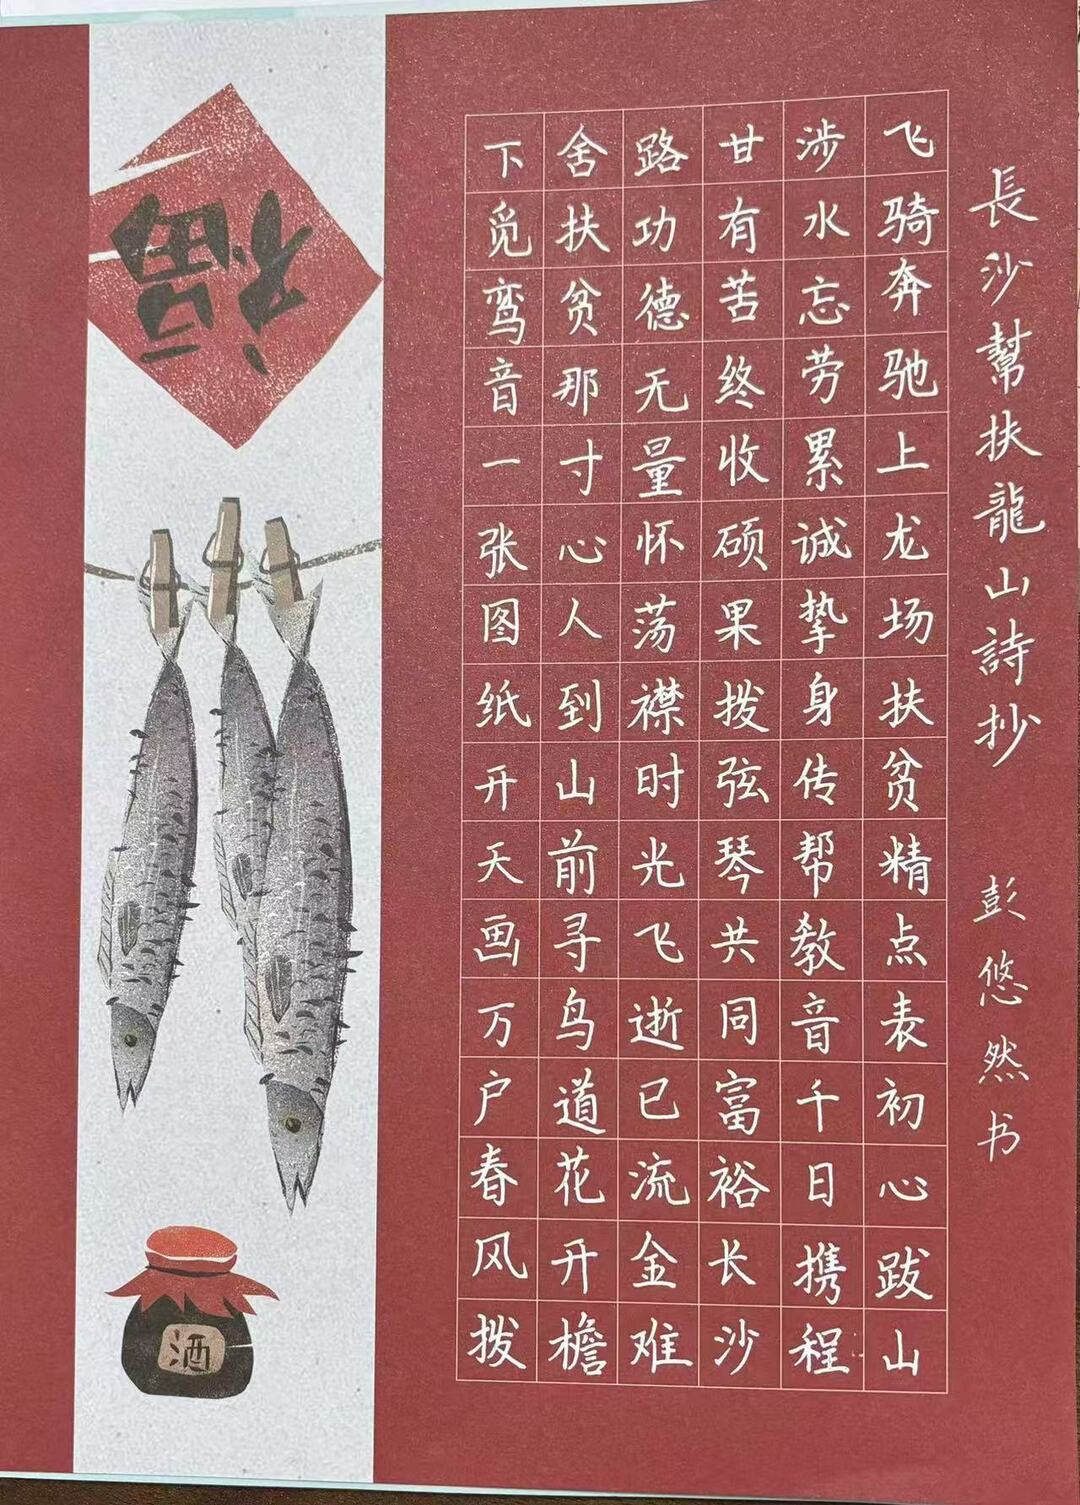 長沙幫扶龍山詩抄 彭悠然书
飞骑奔驰上龙场扶贫精点表初心跋山
涉水忘劳累诚挚身传帮教音千日携程
甘有苦终收硕果拨弦琴共同富裕长沙
路功德无量怀荡襟时光飞逝已流金难
舍扶贫那寸心人到山前寻鸟道花开檐
下觅鸾音一张图纸开天画万户春风拨
福
酒